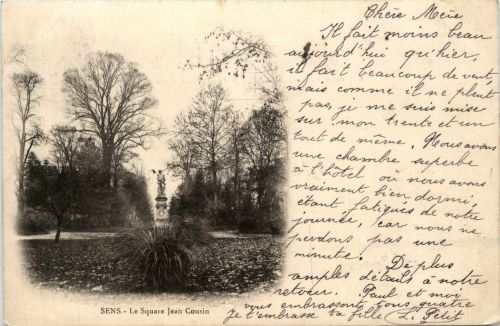 Chère Mère
Il fait moins beau
aujourd'hui qu'hier,
il fait beaucoup de vent,
mais comme il ne pleut
pas, je me suis mise
sur mon trente et un
tout de même. Nous avons
une chambre superbe
à l'hôtel où nous avons
vraiment bien dormi,
étant fatigués de notre
journée, car nous ne
perdons pas une
minute. De plus
amples détails à notre
retour. Paul et moi
vous embrassons tous quatre
Je t'embrasse ta fille L. Petit
SENS. - Le Square Jean Cousin